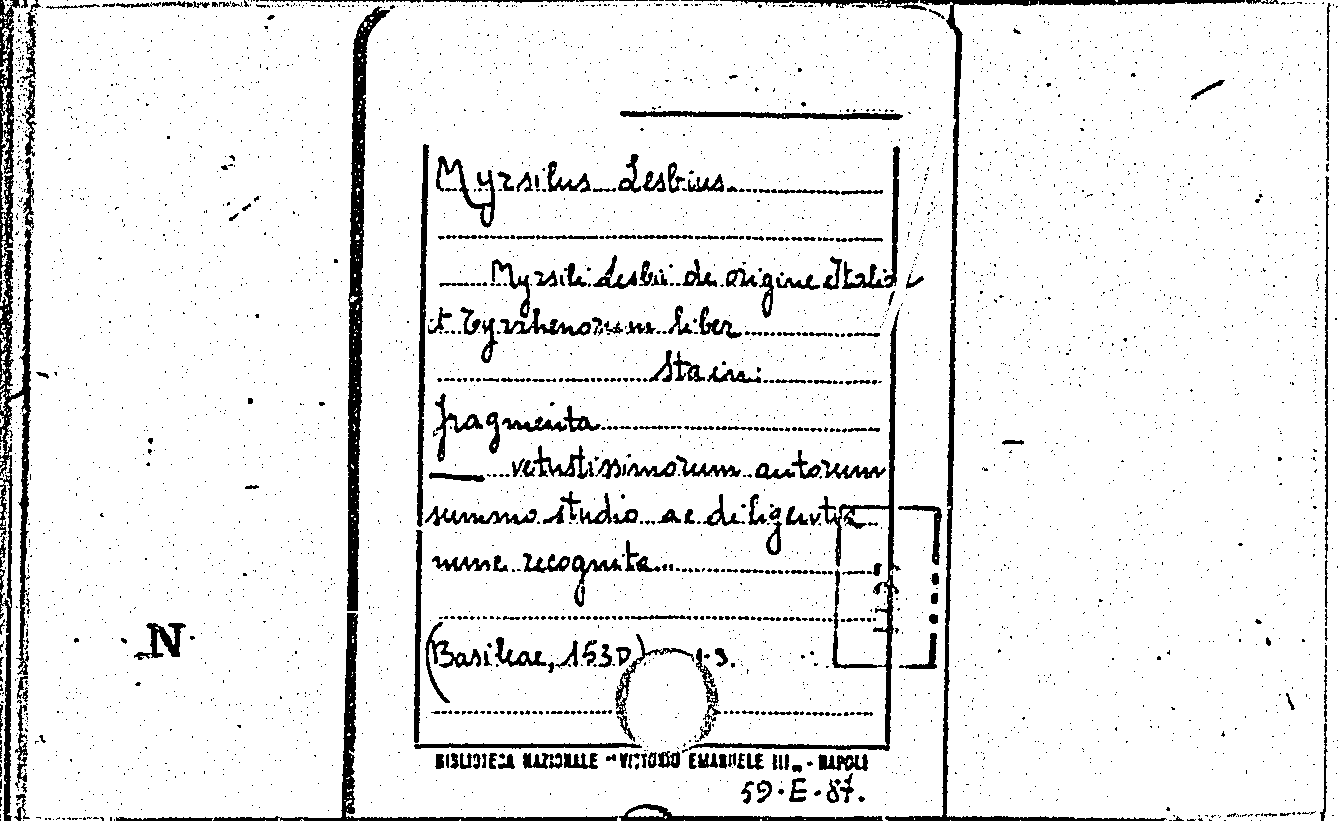 Myrsilus Lesbius.
Myrsili Lesbii de origine Italiæ
et Tyrrhenorum liber
Sta in:
fragmenta
vetustissimorum autorum
summo studio ac diligentia
nunc recognita..
(Basileae, 1530)
N
BIBLIOTECA NAZIONALE "VITTORIO EMANUELE III„ - NAPOLI
59.E.87.